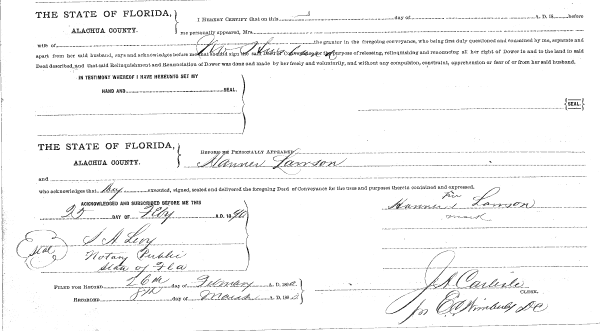 THE STATE OF FLORIDA,
ALACHUA COUNTY.
I HEREBY CERTIFY that on this day of A. D. 18 before
me personally appeared, Mrs.
wife of the grantor in the foregoing conveyance, who being first duly questioned and examined by me, separate and
apart from her said husband, says and acknowledges before me that she did sign the said Deed of Conveyance for the purpose of releasing, relinquishing and renouncing all her right of Dower in and to the land in said
Deed described, and that said Relinquishment and Renunciation of Dower was done and made by her freely and voluntarily, and without any compulsion, constraint, apprehension or fear of or from her said husband.
No Husband
IN TESTIMONY WHEREOF I HAVE HEREUNTO SET MY
HAND AND SEAL.
SEAL.
THE STATE OF FLORIDA,
ALACHUA COUNTY.
BEFORE ME PERSONALLY APPEARED
Hanner Lawson
and
who acknowledges that executed, signed, sealed and delivered the foregoing Deed of Conveyance for the uses and purposes therein contained and expressed.
ACKNOWLEDGED AND SUBSCRIBED BEFORE ME THIS
25 DAY OF Feby A.D. 1890
Hanner her Lawson
mark
Seal
S A Levy
Notary Public
State of Fla
FILED FOR RECORD 26th day of February A. D. 18
RECORDED 8th day of March A. D. 18
J A Carlisle
CLERK.
for E Wimberly DC